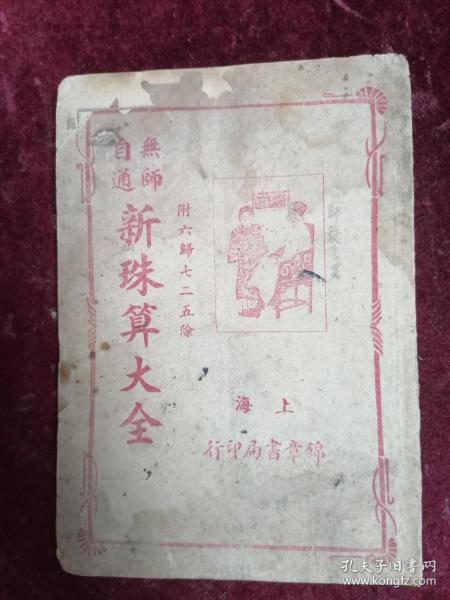 無師
自通
新珠算大全
附六歸七二五除
上海
錦章書局印行
孔夫子旧书网
www.kongfz.com